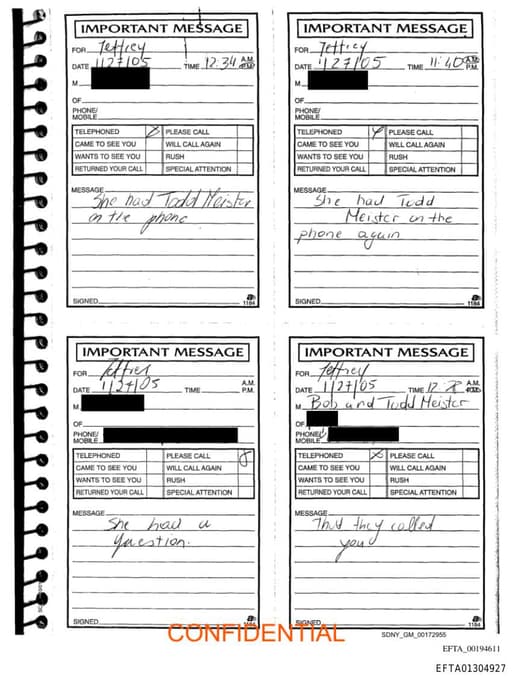 IMPORTANT MESSAGE
FOR Jeffrey
DATE 1/27/05 TIME 12:34 A.M. P.M.
M
OF
PHONE/
MOBILE
TELEPHONED PLEASE CALL
CAME TO SEE YOU WILL CALL AGAIN
WANTS TO SEE YOU RUSH
RETURNED YOUR CALL SPECIAL ATTENTION
MESSAGE
She had Todd Meister
on the phone
SIGNED
1184
IMPORTANT MESSAGE
FOR Jeffrey
DATE 1/27/05 TIME 11:40 A.M. P.M.
M
OF
PHONE/
MOBILE
TELEPHONED PLEASE CALL
CAME TO SEE YOU WILL CALL AGAIN
WANTS TO SEE YOU RUSH
RETURNED YOUR CALL SPECIAL ATTENTION
MESSAGE
She had Todd
Meister on the
phone again
SIGNED
1184
IMPORTANT MESSAGE
FOR Jeffrey
DATE 1/27/05 TIME A.M. P.M.
M
OF
PHONE/
MOBILE
TELEPHONED PLEASE CALL
CAME TO SEE YOU WILL CALL AGAIN
WANTS TO SEE YOU RUSH
RETURNED YOUR CALL SPECIAL ATTENTION
MESSAGE
She had a
question.
SIGNED
1184
IMPORTANT MESSAGE
FOR Jeffrey
DATE 1/27/05 TIME A.M.
M Bob and Todd Meister
OF
PHONE/
MOBILE
TELEPHONED PLEASE CALL
CAME TO SEE YOU WILL CALL AGAIN
WANTS TO SEE YOU RUSH
RETURNED YOUR CALL SPECIAL ATTENTION
MESSAGE
That they called
you
SIGNED
1184
CONFIDENTIAL
SDNY_GM_00172955
EFTA_00194611
EFTA01304927